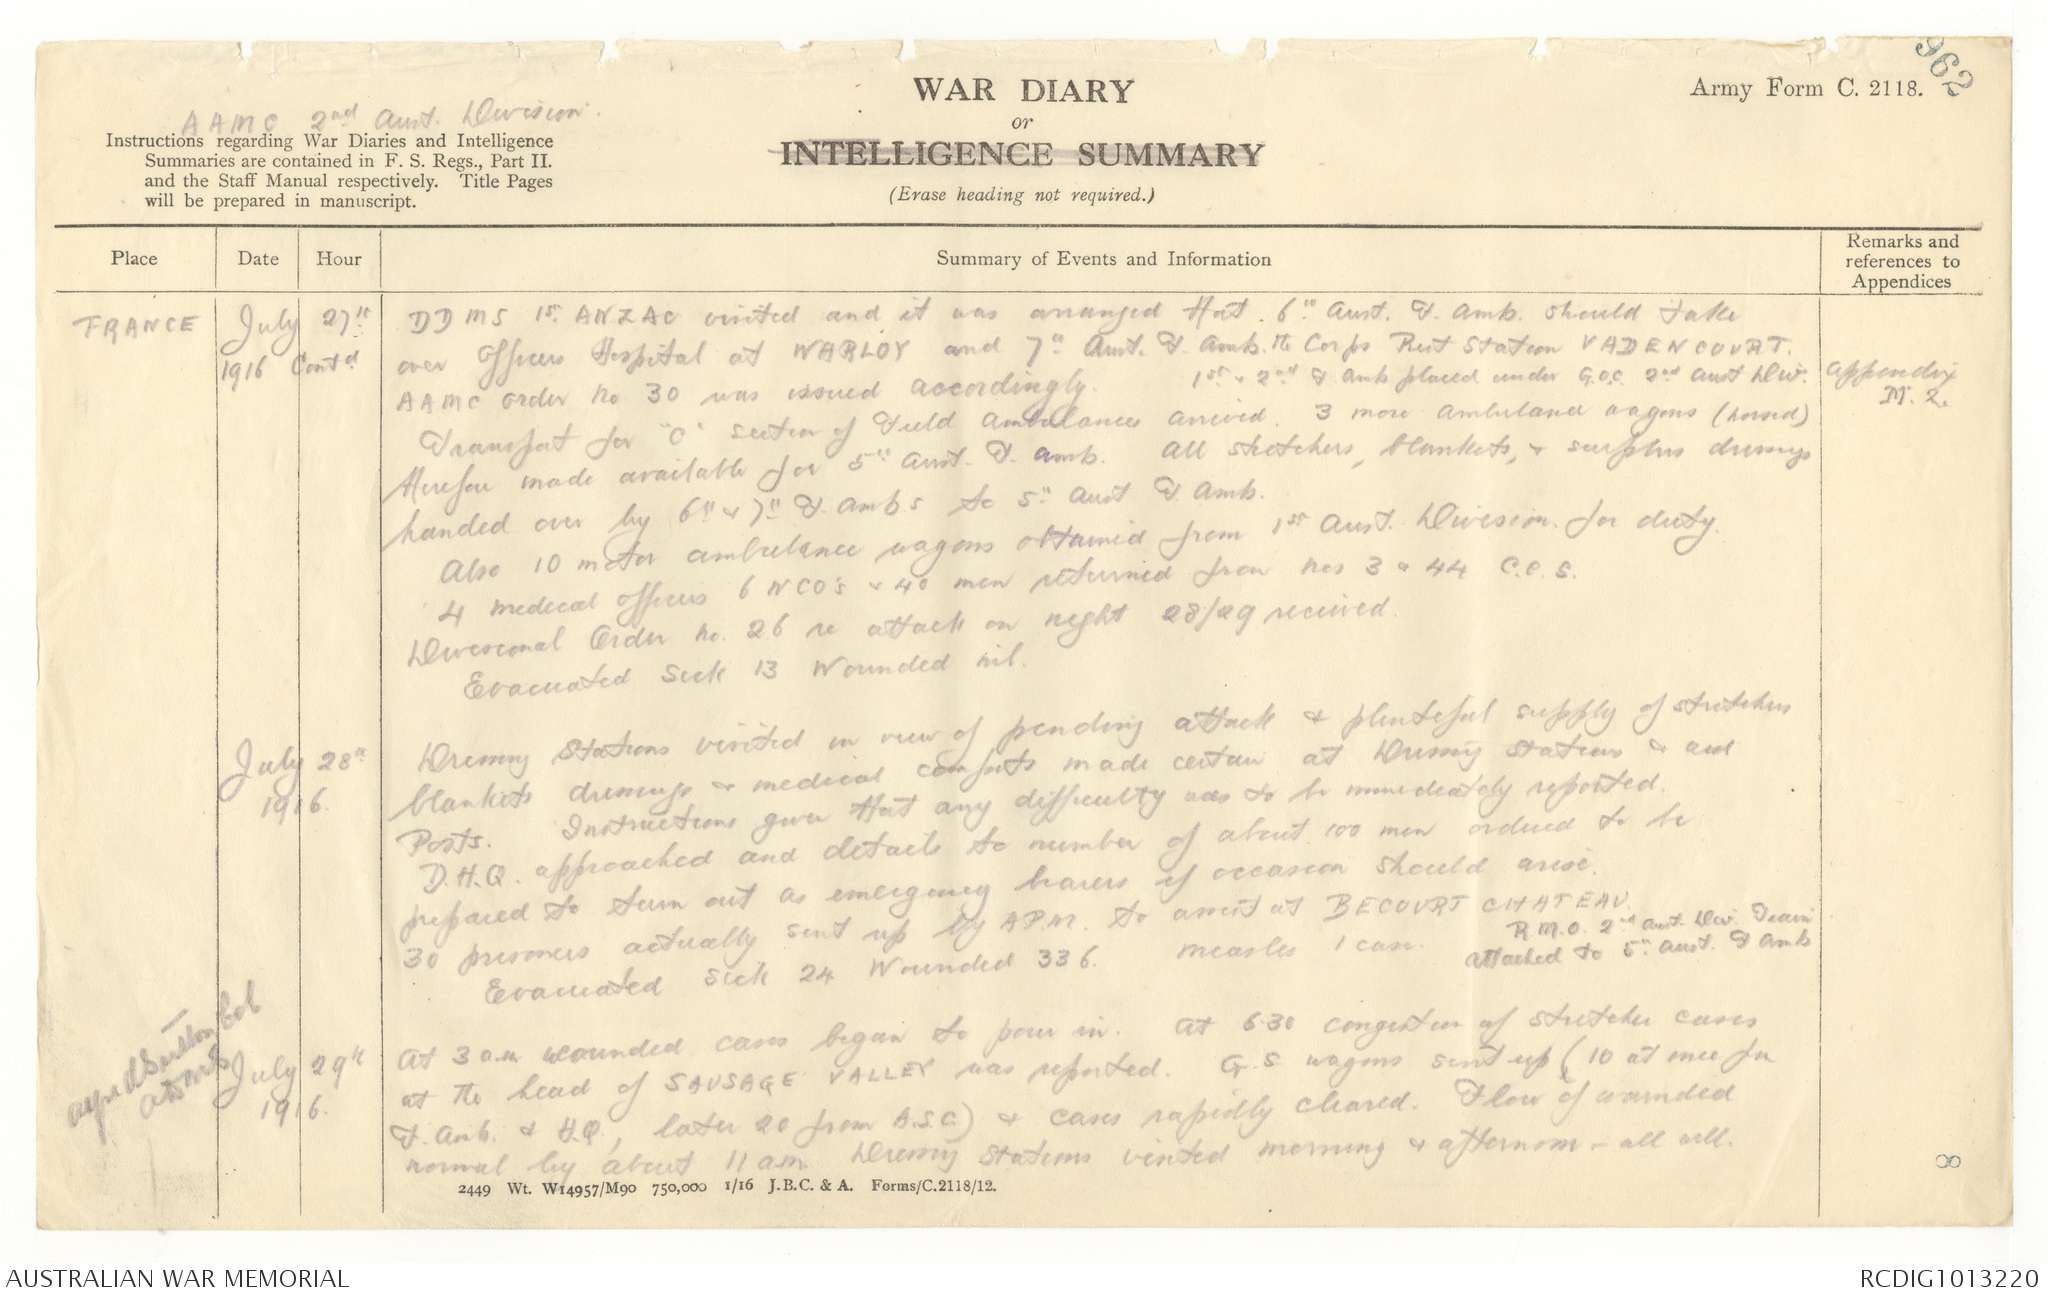 962
WAR DIARY
or
INTELLIGENCE SUMMARY
(Erase heading not required.)
Army Form C. 2118.
AAMC 2nd Aust. Division.
Instructions regarding War Diaries and Intelligence
Summaries are contained in F. S. Regs., Part II.
and the Staff Manual respectively. Title Pages
will be prepared in manuscript.
Place
Date
Hour
Summary of Events and Information
Remarks and
references to
Appendices
FRANCE
July 27th
1916 Contd
DDMS 1st ANZAC visited and it was arranged that 6th Aust. F. Amb. should take
over Officers Hospital at WARLOY and 7th Aust. F. Amb. the Corps Rest Station VADENCOURT.
AAMC order No 30 was issued accordingly. 1st & 2nd F. Amb placed under G.O.C. 2nd Aust Div.
Appendix
M. 2.
Transport for "C" section of Field Ambulances arrived. 3 more ambulance wagons (horsed)
therefore made available for 5th Aust. F. Amb. All stretchers, blankets, & surplus dressings
handed over by 6th & 7th F. Ambs to 5th Aust F. Amb.
Also 10 motor ambulance wagons obtained from 1st Aust. Division for duty.
4 medical officers 6 NCO's & 40 men returned from Nos 3 & 44 C.C.S.
Divisional Order No. 26 re attack on night 28/29 received.
Evacuated Sick 13 Wounded nil.
July 28th
1916.
Dressing Stations visited in view of pending attack & plentiful supply of stretchers
blankets dressings & medical comforts made certain at Dressing Stations & aid
Posts. Instructions given that any difficulty was to be immediately reported.
D.H.Q. approached and details to number of about 100 men ordered to be
prepared to turn out as emergency bearers if occasion should arise.
30 prisoners actually sent up by A.P.M. to assist at BECOURT CHATEAU.
Evacuated Sick 24 Wounded 336. Measles 1 case. R.M.O. 2nd Aust. Div. Train
attached to 5th Aust. F Amb
July 29th
1916.
At 3 a.m wounded cases began to pour in. At 6.30 congestion of stretcher cases
at the head of SAUSAGE VALLEY was reported. G.S. wagons sent up (10 at once from
F. Amb. & H.Q., later 20 from A.S.C.) & cases rapidly cleared. Flow of wounded
normal by about 11 a.m. Dressing Stations visited morning & afternoon - all well.
Sutton Col
ADMS
2449 Wt. W14957/M90 750,000 1/16 J.B.C. & A. Forms/C.2118/12.
8
AUSTRALIAN WAR MEMORIAL
RCDIG1013220